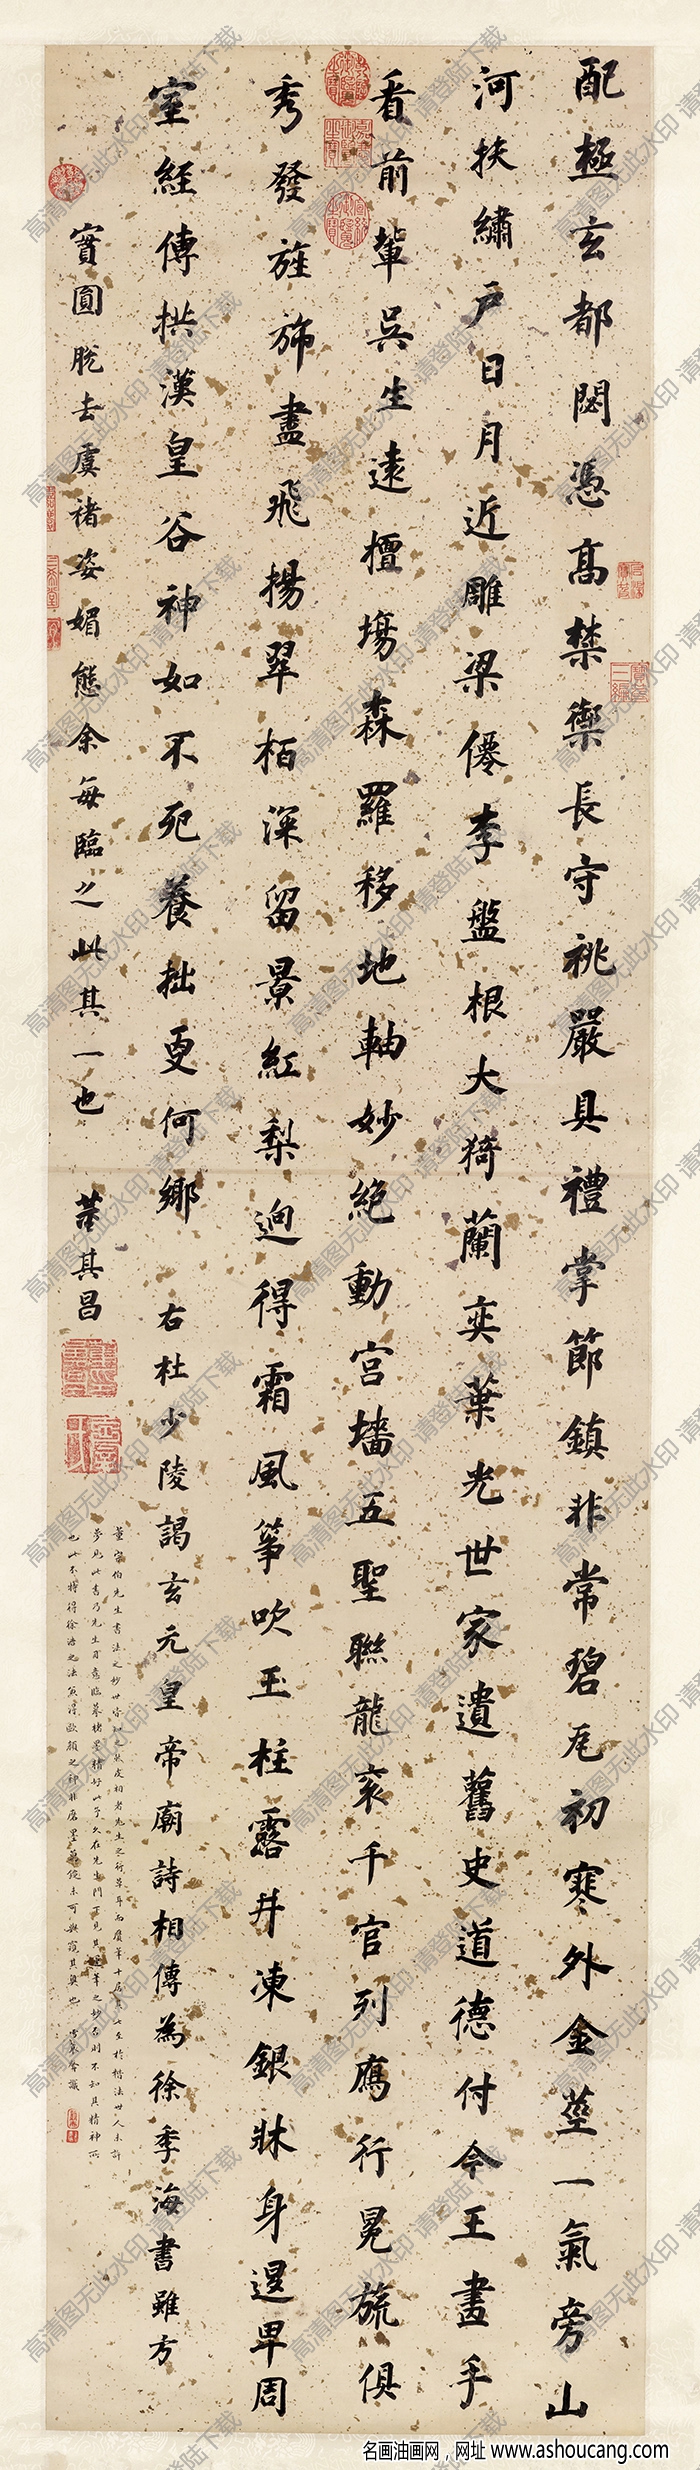 配極玄都閟憑高禁禦長守祧嚴具禮掌節鎮非常碧瓦初寒外金莖一氣旁山
河扶繡戶日月近雕梁僊李盤根大猗蘭奕葉光世家遺舊史道德付今王畫手
看前輩吳生遠擅場森羅移地軸妙絕動宮墻五聖聯龍袞千官列鴈行冕旒俱
秀發旌旆盡飛揚翠栢深留景紅梨迥得霜風箏吹玉柱露井凍銀牀身退卑周
室經傳拱漢皇谷神如不死養拙更何鄉 右杜少陵謁玄元皇帝廟詩相傳為徐季海書雖方
實圓脫去虞褚姿媚態余每臨之此其一也 董其昌
高清图无此水印·请登陆下载
名画油画网，网址 www.ashoucang.com